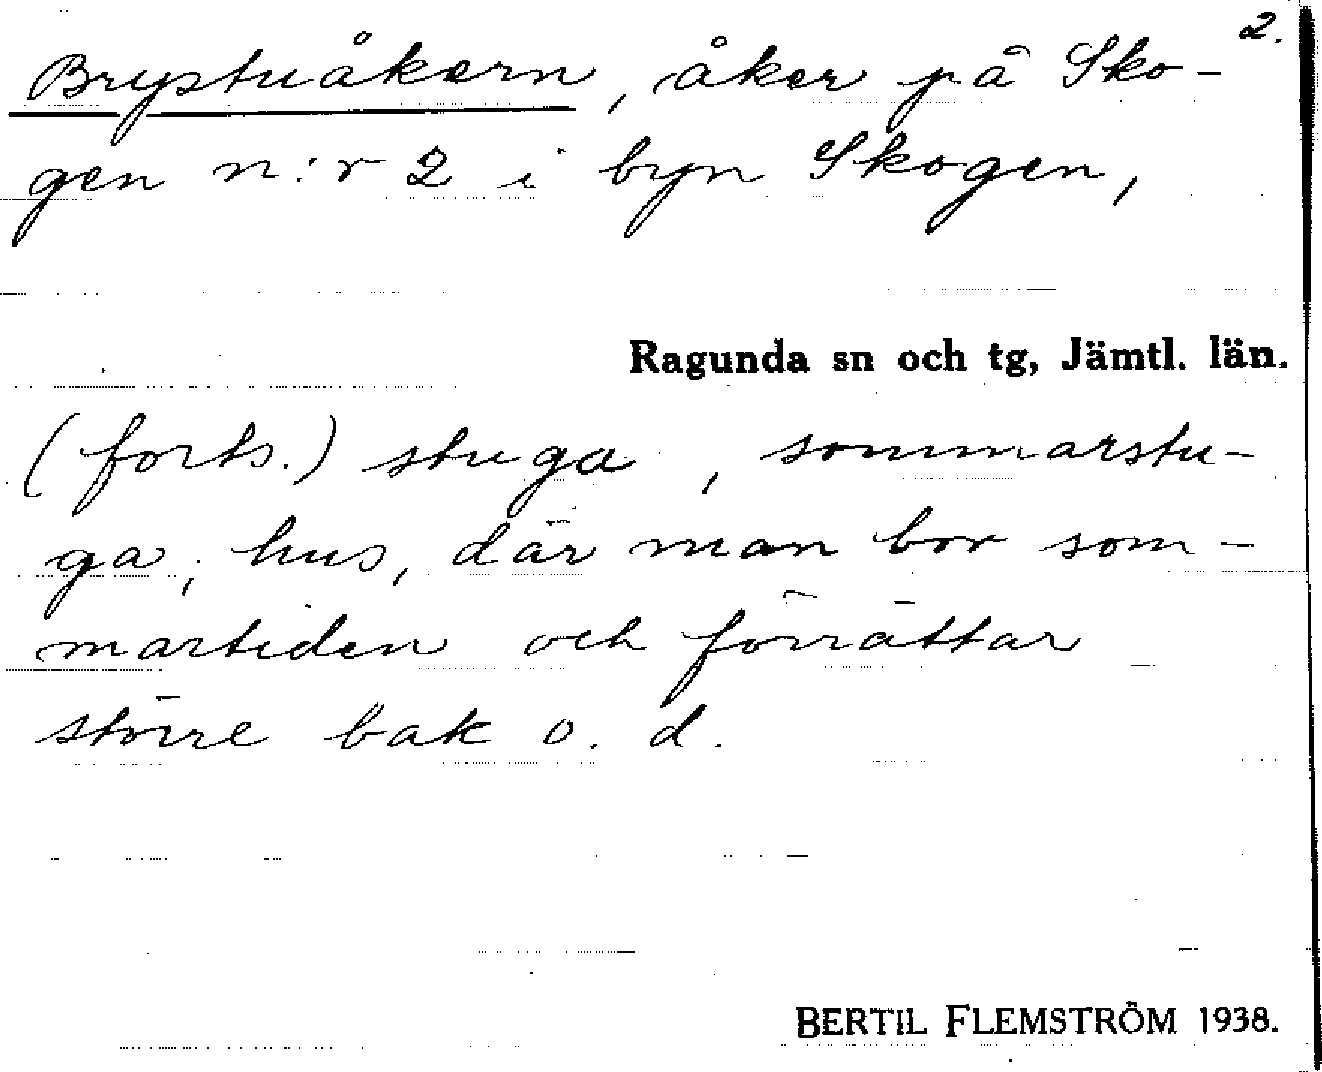 2.
Brystuåkern, åker på Sko-
gen n:r 2 i byn Skogen,
Ragunda sn och tg, Jämtl. län.
(forts.) stuga, sommarstu-
ga, hus, där man bor som-
martiden och förrättar
större bak o. d.
BERTIL FLEMSTRÖM 1938.